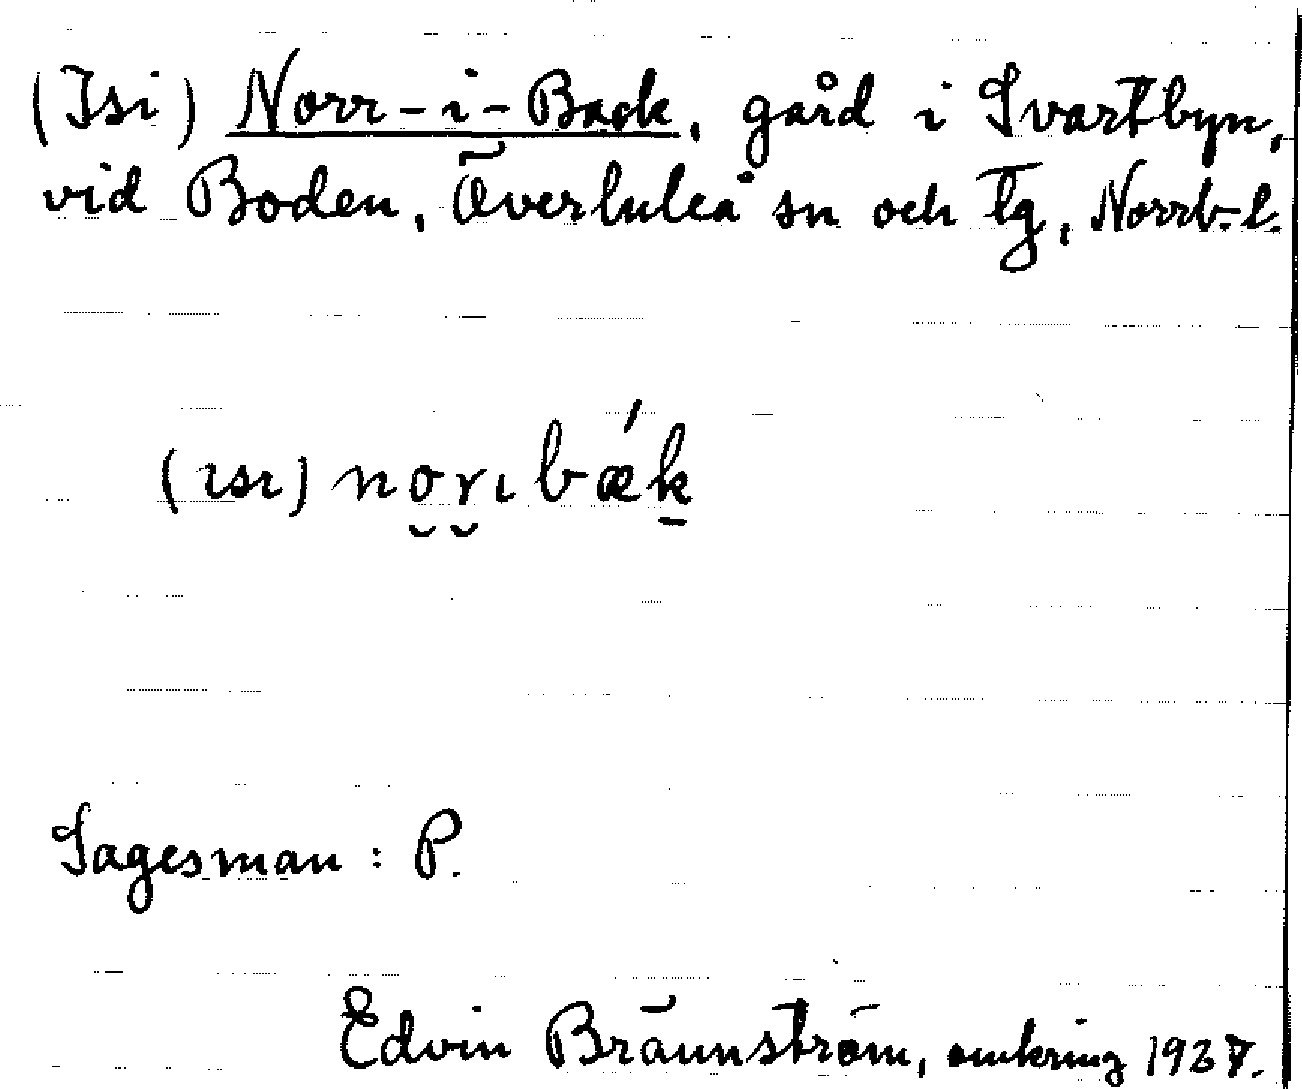 (Isi) Norr-i-Back, gård i Svartbyn,
vid Boden, Överluleå sn och tg, Norrb. l.
(ısı) norı bæ´k
Sagesman: P.
Edvin Brännström, omkring 1937.